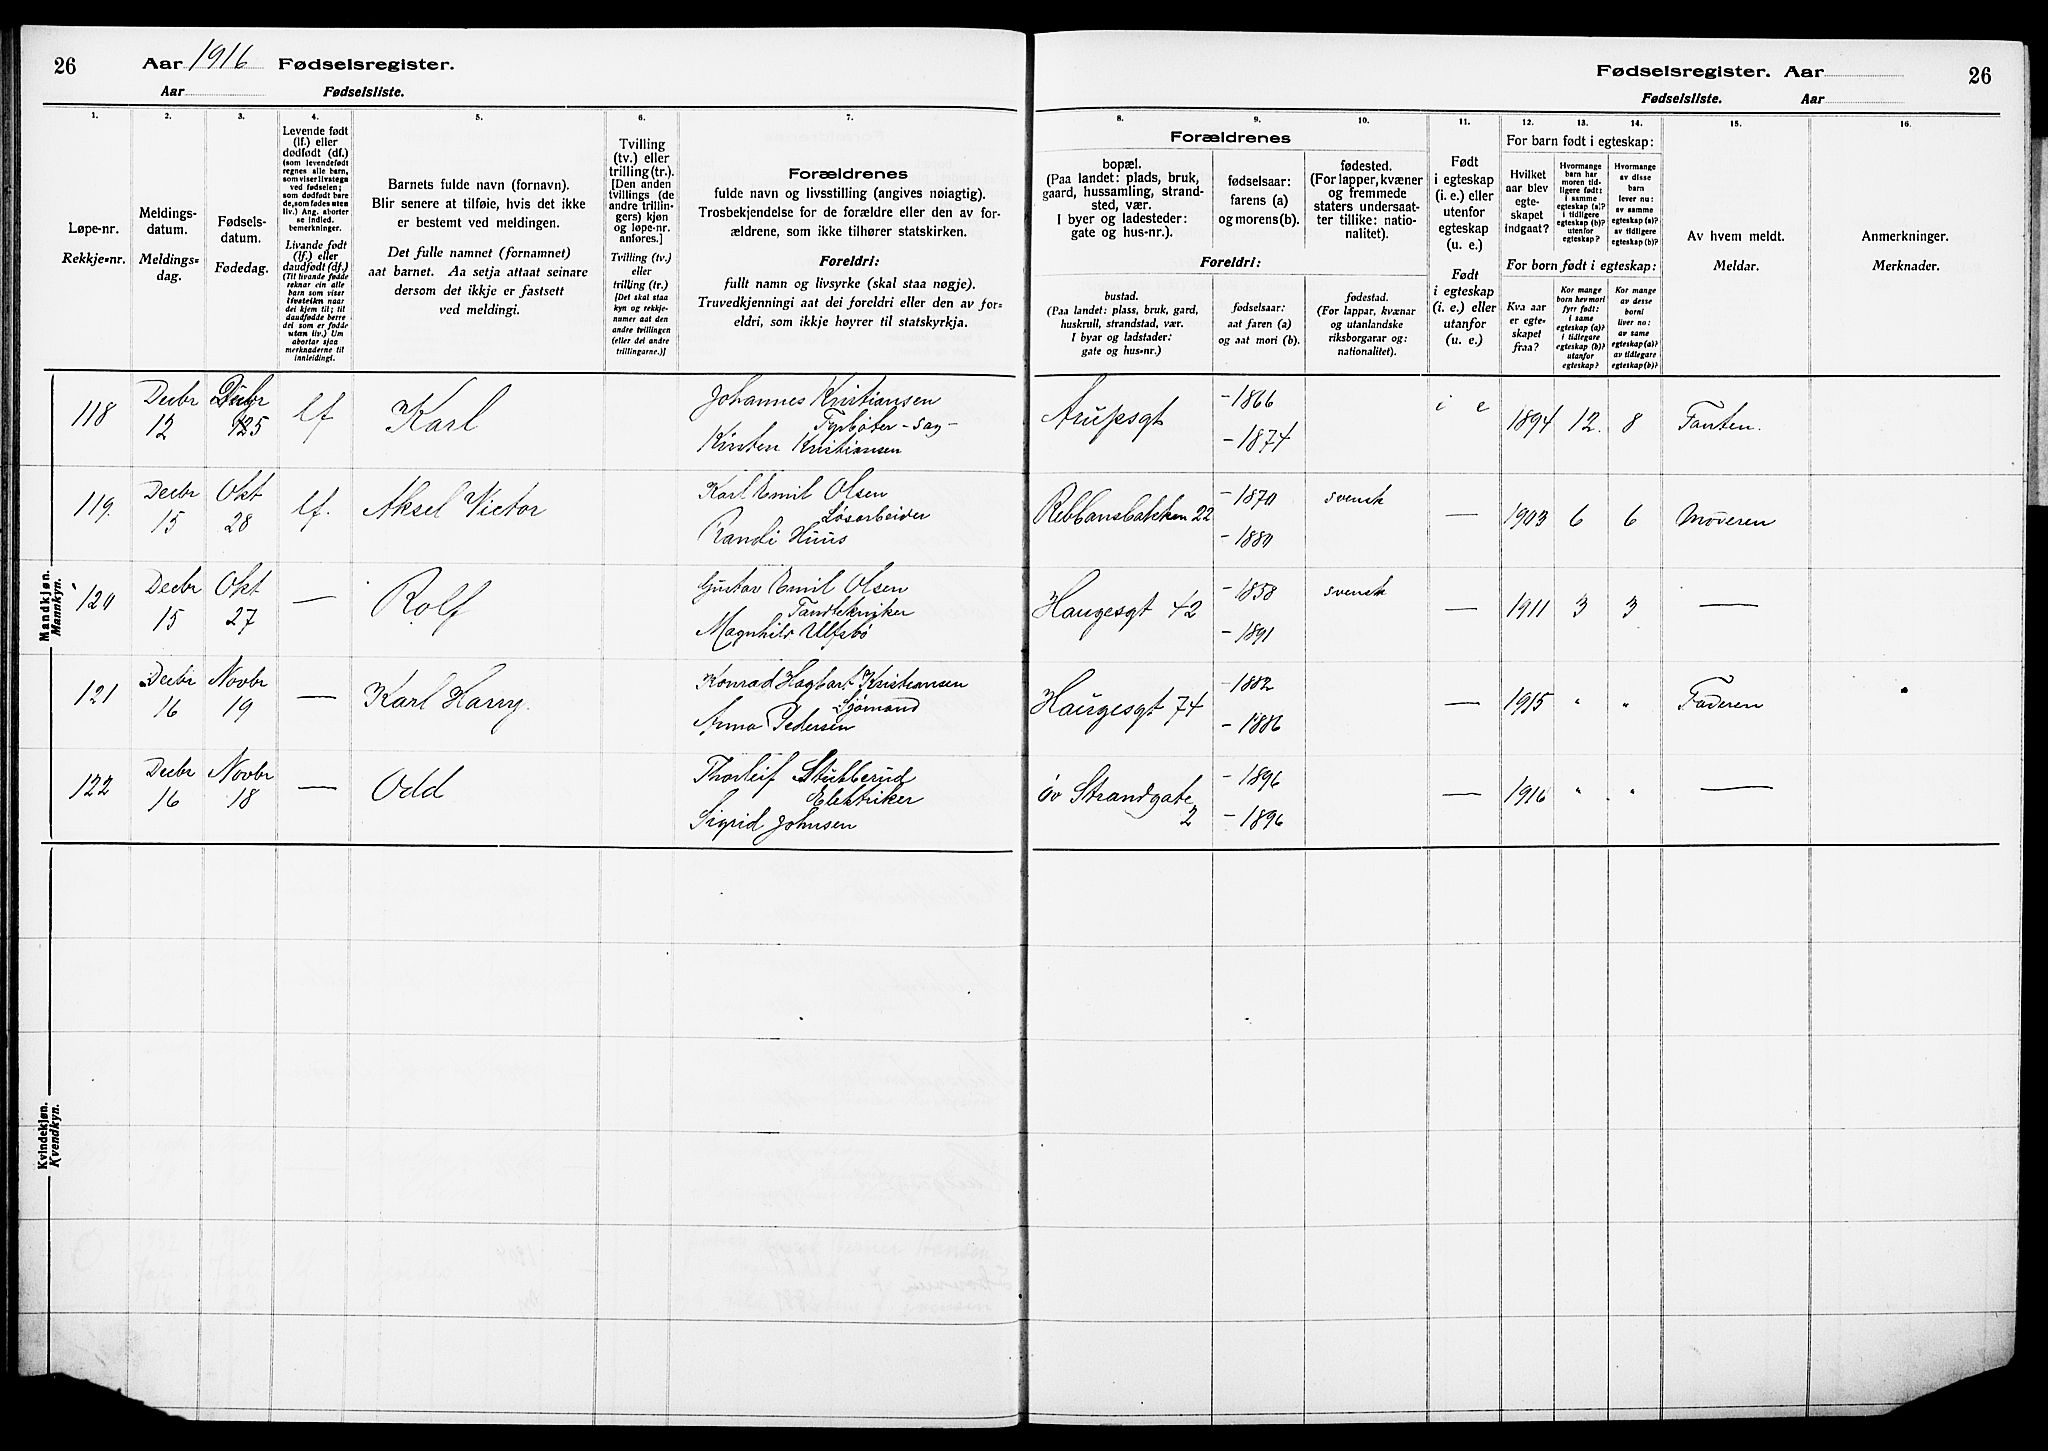 26 Aar 1916 Fødselsregister.
Aar Fødselsliste.
Fødselsregister. Aar 26
Fødselsliste. Aar
1. 2. 3. 4. 5. 6. 7. 8. 9. 10. 11. 12. 13. 14. 15. 16.
Løpe-nr.
Rekkje-nr.
Meldings-
datum.
Meldings-
dag.
Fødsels-
datum.
Fødedag.
Levende født
(lf.) eller
dødfødt (df.)
(som levendefødt
regnes alle barn,
som viser livstegn
ved fødselen;
som dødfødt bare
de, som fødes uten
liv.) Ang. aborter
se indled.
bemerkninger.
Livande født
(lf.) eller
daudfødt (df.)
(Til livande fødde
reknar ein alle
barn som viser
livsteikn naar
dei kjem til; til
daudfødde berre
dei som er fødde
utan liv.) Um
abortar sjaa
merknaderne til
innleidingi.
Barnets fulde navn (fornavn).
Blir senere at tilføie, hvis det ikke
er bestemt ved meldingen.
Det fulle namnet (fornamnet)
aat barnet. Aa setja attaat seinare
dersom det ikkje er fastsett
ved meldingi.
Tvilling
(tv.) eller
trilling (tr.).
[Den anden
tvillings (de
andre trillin-
gers) kjøn
og løpe-nr.
anføres.]
Tvilling (tv.)
eller
trilling (tr.)
[Det skal staa
kyn og rekkje-
numer aat den
andre tvillingen
(eller dei andre
trillingarne.)]
Forældrenes
fulde navn og livsstilling (angives nøiagtig).
Trosbekjendelse for de forældre eller den av for-
ældrene, som ikke tilhører statskirken.
Foreldri:
fullt namn og livsyrke (skal staa nøgje).
Truvedkjenningi aat dei foreldri eller den av for-
eldri, som ikkje høyrer til statskyrkja.
Forældrenes
bopæl.
(Paa landet: plads, bruk,
gaard, hussamling, strand-
sted, vær.
I byer og ladesteder:
gate og hus-nr.).
fødselsaar:
farens (a)
og morens (b).
fødested.
(For lapper, kvæner
og fremmede
staters undersaat-
ter tillike: natio-
nalitet).
Foreldri:
bustad.
(Paa landet: plass, bruk, gard,
huskrull, strandstad, vær.
I byar og ladstader:
gate og hus-nr.)
fødselsaar:
aat faren (a)
og aat mori (b).
fødestad.
(For lappar, kvænar
og utanlandske
riksborgarar og:
nationalitet).
Født
i egteskap
(i. e.) eller
utenfor
egteskap
(u. e.)
Født
i egteskap
(i. e.) eller
utanfor
(u. e.)
For barn født i egteskap:
Hvilket
aar blev
egte-
skapet
indgaat?
Hvormange
barn har
moren tid-
ligere født:
i samme
egteskap (a)?
i tidligere
egteskap (b)?
utenfor
egteskap?
Hvormange
av disse
barn
lever nu:
av samme
egteskap (a)?
av tidligere
egteskap (b)?
For born født i egteskap:
Kva aar
er egte-
skapet
fraa?
Kor mange
born hev mori
fyrr født:
i same
egteskap (a)?
i tidlegare
egteskap (b)?
utanfor
egteskap?
Kor mange
av desse
borni
liver no:
av same
egteskap (a)?
av tidlegare
egteskap (b)?
Av hvem meldt.
Meldar.
Anmerkninger.
Merknader.
Mandkjøn.
Mannkyn.
118 Decbr 12 25 lf Karl Johannes Kristiansen
Fyrbøter - sag -
Kirsten Kristiansen
Arupsgt - 1866 - 1874 i e 1894 12. 8
119. Decbr 15 Okt 28 lf. Aksel Victor Karl Emil Olsen
Løsarbeider
Randi Huus
Rebbansbakken 22 - 1870 - 1880 svensk — 1903 6 6 Moderen
120 Decbr 15 Okt 27 — Rolf Gustav Emil Olsen
Tandtekniker
Magnhild Ulfsbø
Haugesgt 42 - 1858 - 1891 svensk — 1911 3 3 —
121 Decbr 16 Novbr 19 — Karl Harry. Konrad Hagbart Kristiansen
Sjømand
Anna Pedersen
Haugesgt 74 - 1882 - 1886 — 1915 " " Faderen
122 Decbr 16 Novbr 18 — Odd Thorleif Stubberud
Elektriker
Sigrid Johnsen
øv Strandgate 2 - 1896 - 1896 — 1916 " " —
Kvindekjøn.
Kvendkyn.